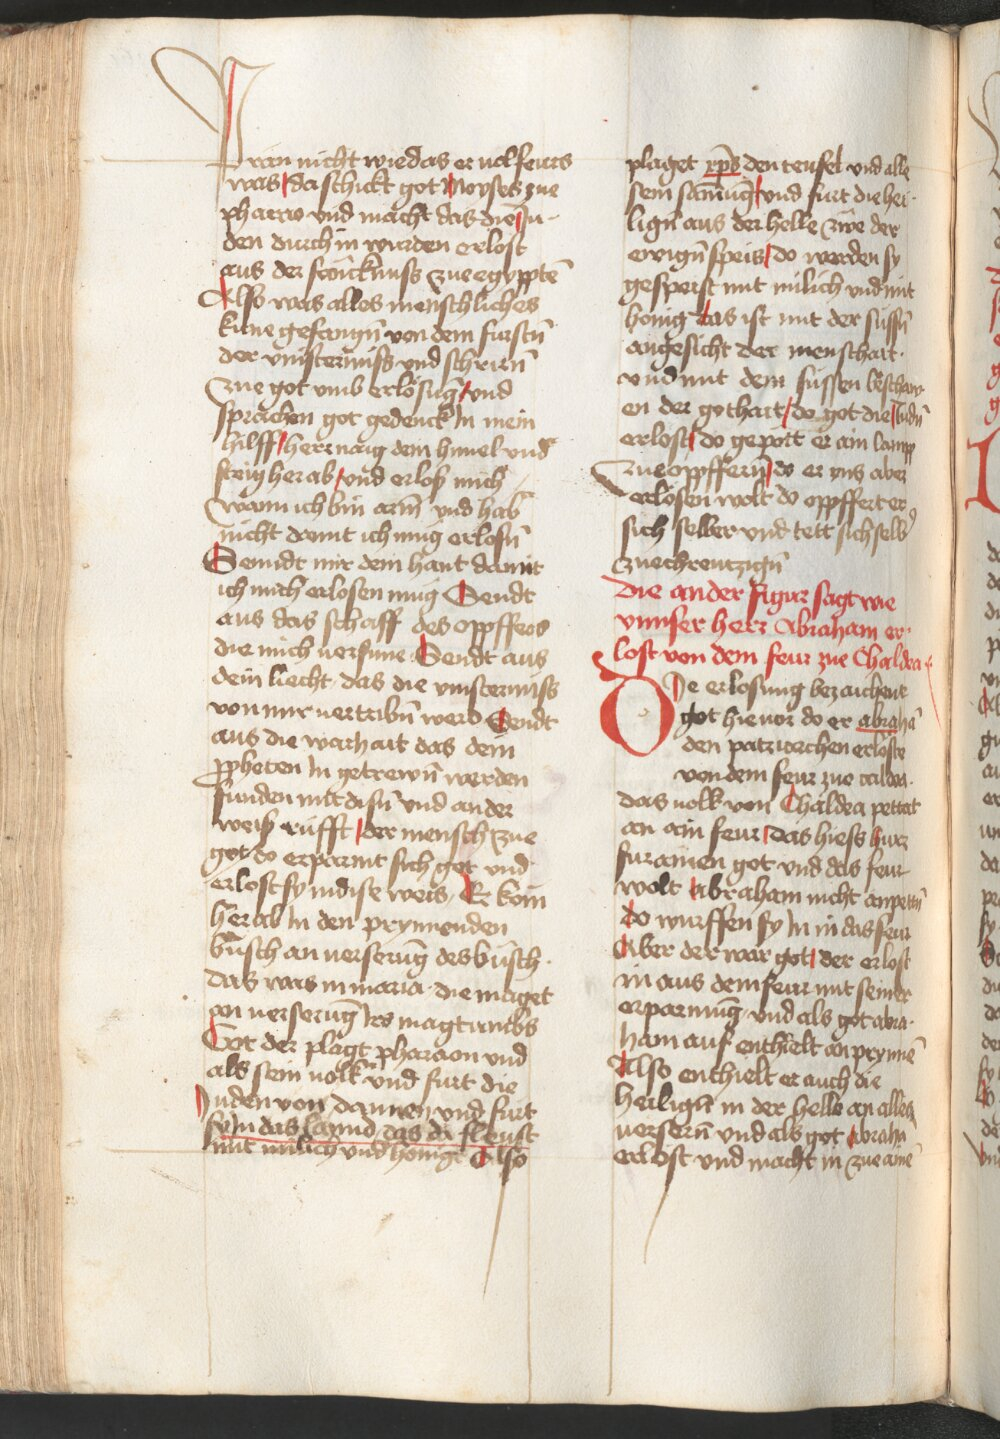 pran nicht wie das er vol feurs
was da schickt got Moyses zue
pharro vnd macht das die Ju-
den durch in wurden erlost
aus der fänncknuss zue egyppte͂
Also was alles menschliches
kune gefangn̄ von dem furstn̄
der vinsternuss vnd schrirn̄
zue got vmb erlösūg vnd
sprachen got gedenck In mein
hilff herr naig dein himel vnd
steig her ab vnd erlos mich
wann ich bin arm̄ vnd hab
nicht damit ich mug erlosn̄
Senndt mir dein hant damit
ich mich erlosen mug Sendt
aus das schaff des oppffers
die mich versune Sendt aus
dein liecht das die vinsternuss
von mir vertribn̄ werd Sendt
aus die warhait das dein
ppheten In getrewn̄ werden
funden mit disn̄ vnd ander
weis rufft der mensch zue
got do erparmt sich got vnd
erlost sy in dise weis Er kom
her ab In den prynnenden
busch an verserūg des busch
das was in maria die maget
on verserūg Irs magtumbs
Got der plagt pharaon vnd
als sein volk vnd furt die
Juden von dannen vnd furt
sy In das lannd das da fleust
mit milich vnd honig Also
plaget xp̄s den teufel vnd alle
sein samūg vnd furt die hei-
lign̄ aus der helle zwe der
ewign̄ speis do werden sy
gespeist mit milich vnd mit
honig das ist mit der sussn̄
angesicht der menschait
vnd mit dem sussen beschaw-
en der gothait do got die Judn̄
erlost do gepott er ain lamp
zue oppffern̄ do er vns aber
erlosen wolt do oppffert er
sich selber vnd leit sich selb
zue chreutzign̄
Die ander figur sagt wie
vnnser herr Abraham er-
lost von dem feur zue Chaldea
Die erlosung bezaichent
got hie vor do er abrahā
den patriarchen erloste
von dem feur zue caldea
das volk von Chaldea pettat
an ain feur das hiess hurr
fur ainen got vnd das feur
wolt Abraham nicht anpettn̄
do wurffen sy In in das feur
Aber der war got der erlost
in aus dem feur mit seiner
erparmūg vnd als got abra-
ham auf enthielt on prynne͂
Also enthielt er auch die
heilign̄ in der helle an alles
versern̄ vnd als got abrahā
erlost vnd macht in zue aine͂